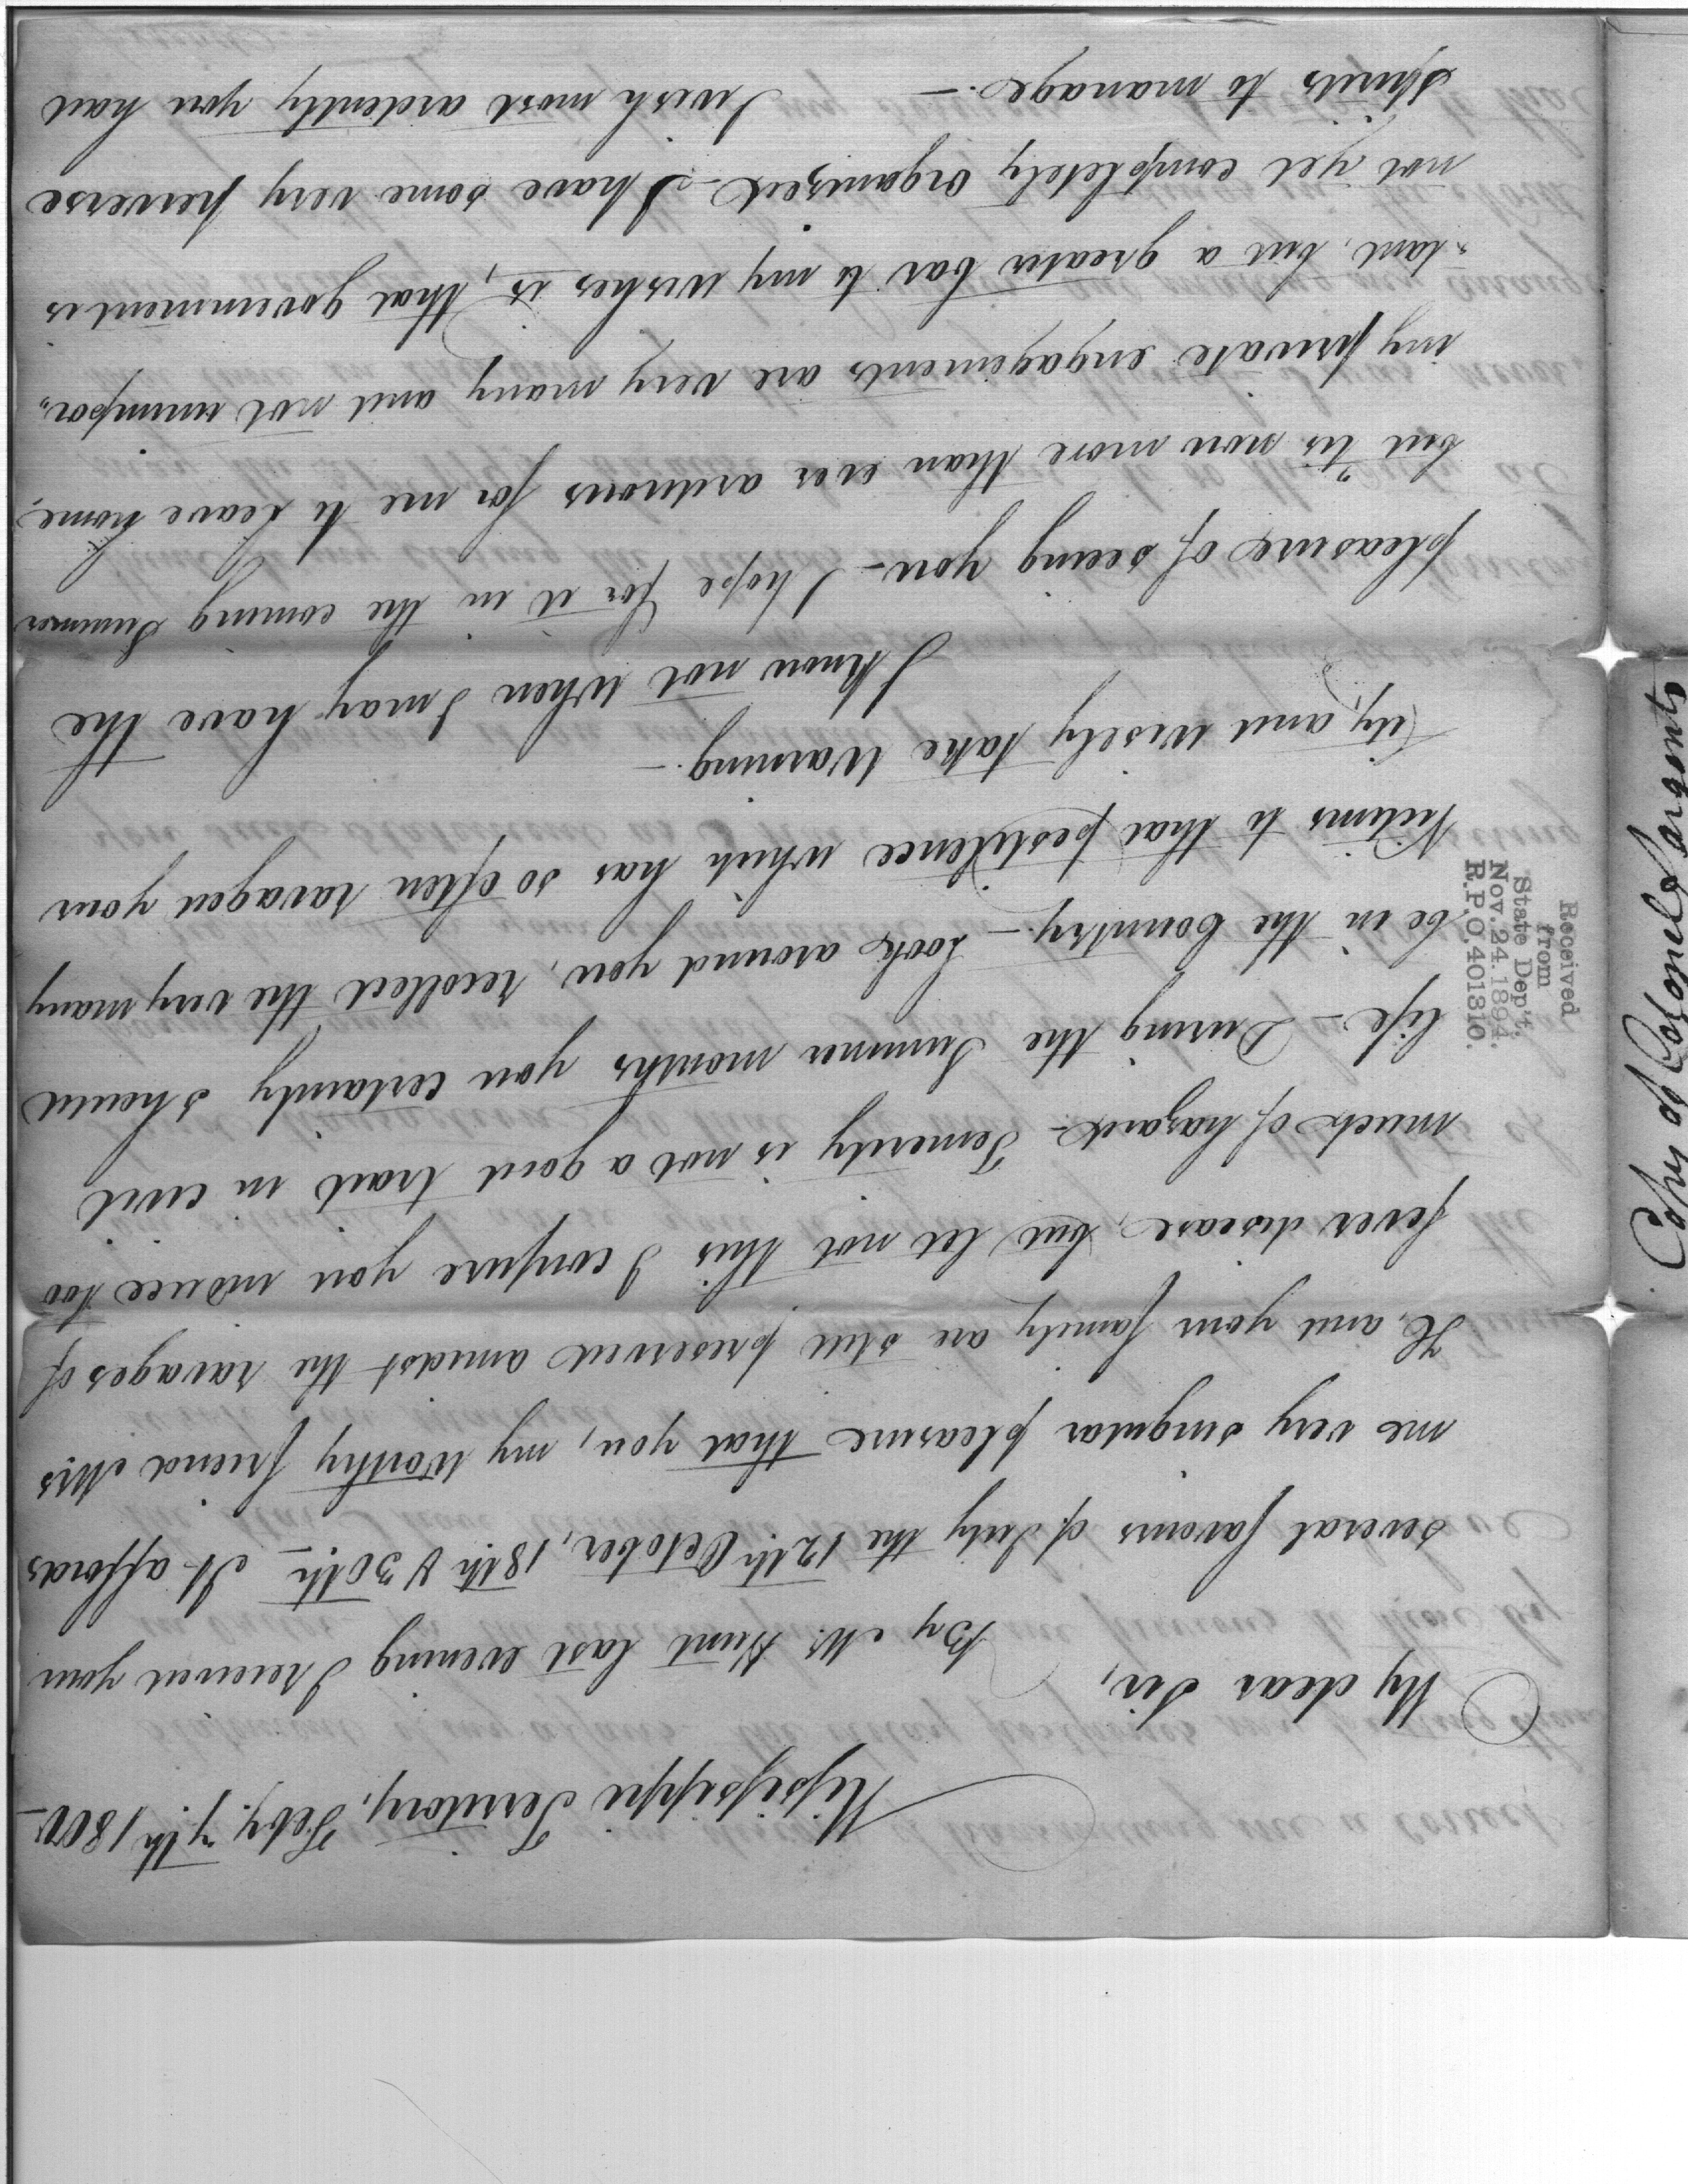 Missisippi Territory, Feby. 7th, 1800-
My dear Sir,
By Mr. Hunt last evening I received your
several favours of July the 12th October, 18th & 30th - It affords
me very singular pleasure that you, my worthy friend Mrs
H. and your family are still preserved amidst the ravages of
fever disease, but let not this I conjure you induce too
much of hazard - Temerity is not a good trait in civil
life - During the Summer months you certainly should
be in the Country - Look around you, recollect the very many
Victims to that pestilence which has so often ravaged your
City, and wisely take Warning. -
I know not when I may have the
pleasure of seeing you - I hope for it in the coming Summer
but 'tis now more than ever arduous for me to leave home,
my private engagements are very many and not unimpor„
„tant, but a greater bar to my wishes is, that government is
not yet completely organized - I have some very perverse
Spirits to manage. - I wish most ardently you had
Received
from
State Dep't.
Nov. 24. 1894.
R.P.O. 401310.
Copy of Colonel Sargents